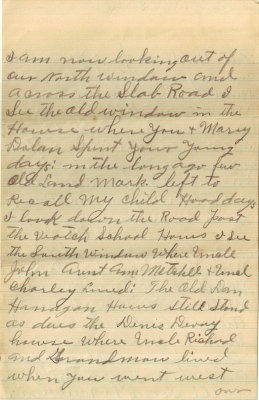 I am now looking out of
our North window and
across the Slab Road I
See the old window in the
House where You & Mary
Dolan Spent Your Young
days: in the long ago few
old Land Mark left to
Recall My Child Hood days
I look down the Road past
the Veatch School House I See
the South Window Where Uncle
John Aunt Ann Mitchell &
Charley Lived: The Old Dan
House Still Stand
as dues the Denis Devoy
house where Uncle Richard
and Grandmaw lived
when You went west
over